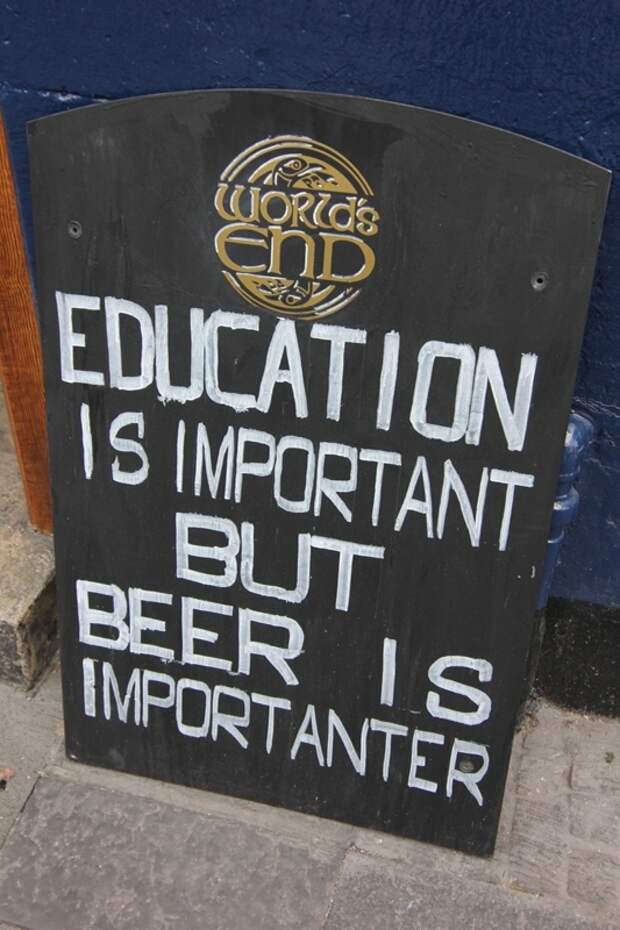 WORLD'S
END
EDUCATION
IS IMPORTANT
BUT
BEER IS
IMPORTANTER